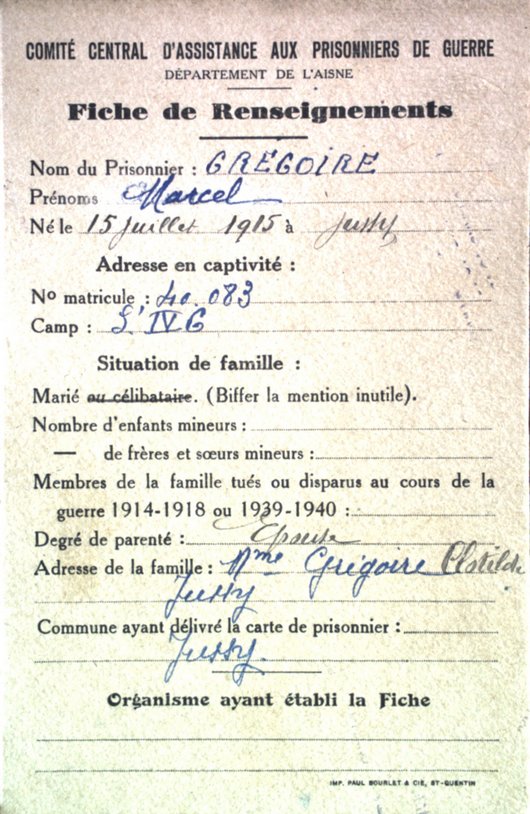 COMITÉ CENTRAL D'ASSISTANCE AUX PRISONNIERS DE GUERRE
DÉPARTEMENT DE L'AISNE
Fiche de Renseignements
Nom du Prisonnier : GREGOIRE
Prénoms Marcel
Né le 15 juillet 1915 à Jussy
Adresse en captivité :
No matricule : 40.083
Camp : S' IV G
Situation de famille :
Marié ou célibataire. (Biffer la mention inutile).
Nombre d'enfants mineurs :
— de frères et sœurs mineurs :
Membres de la famille tués ou disparus au cours de la
guerre 1914-1918 ou 1939-1940 :
Degré de parenté : Epouse
Adresse de la famille : Mme Grégoire Clotilde
Jussy
Commune ayant délivré la carte de prisonnier :
Jussy.
Organisme ayant établi la Fiche
IMP. PAUL BOURLET & CIE, ST-QUENTIN